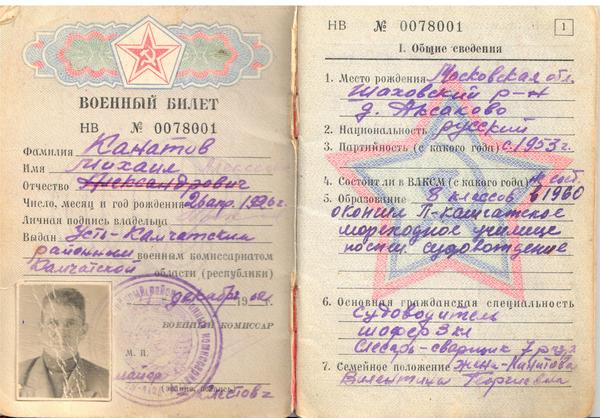 ВОЕННЫЙ БИЛЕТ
НВ № 0078001
Фамилия Канатов
Имя Михаил
Отчество Александрович
Число, месяц и год рождения 1926 г.
Личная подпись владельца
Выдан Усть-Камчатским
районным военным комиссариатом
Камчатской области (республики)
декабря
ВОЕННЫЙ КОМИССАР
М. П.
майор
НВ № 0078001 1
I. Общие сведения
1. Место рождения Московская обл.
Шаховский р-н
д. Аксаково
2. Национальность русский
3. Партийность (с какого года) с 1953 г.
4. Состоит ли в ВЛКСМ (с какого года) не сост.
5. Образование 8 классов в 1960
окончил П-Камчатское
мореходное училище
судовождение
6. Основная гражданская специальность
Судоводитель
шофер 3 кл
Слесарь-сварщик 7
7. Семейное положение жена
Валентина Георгиевна